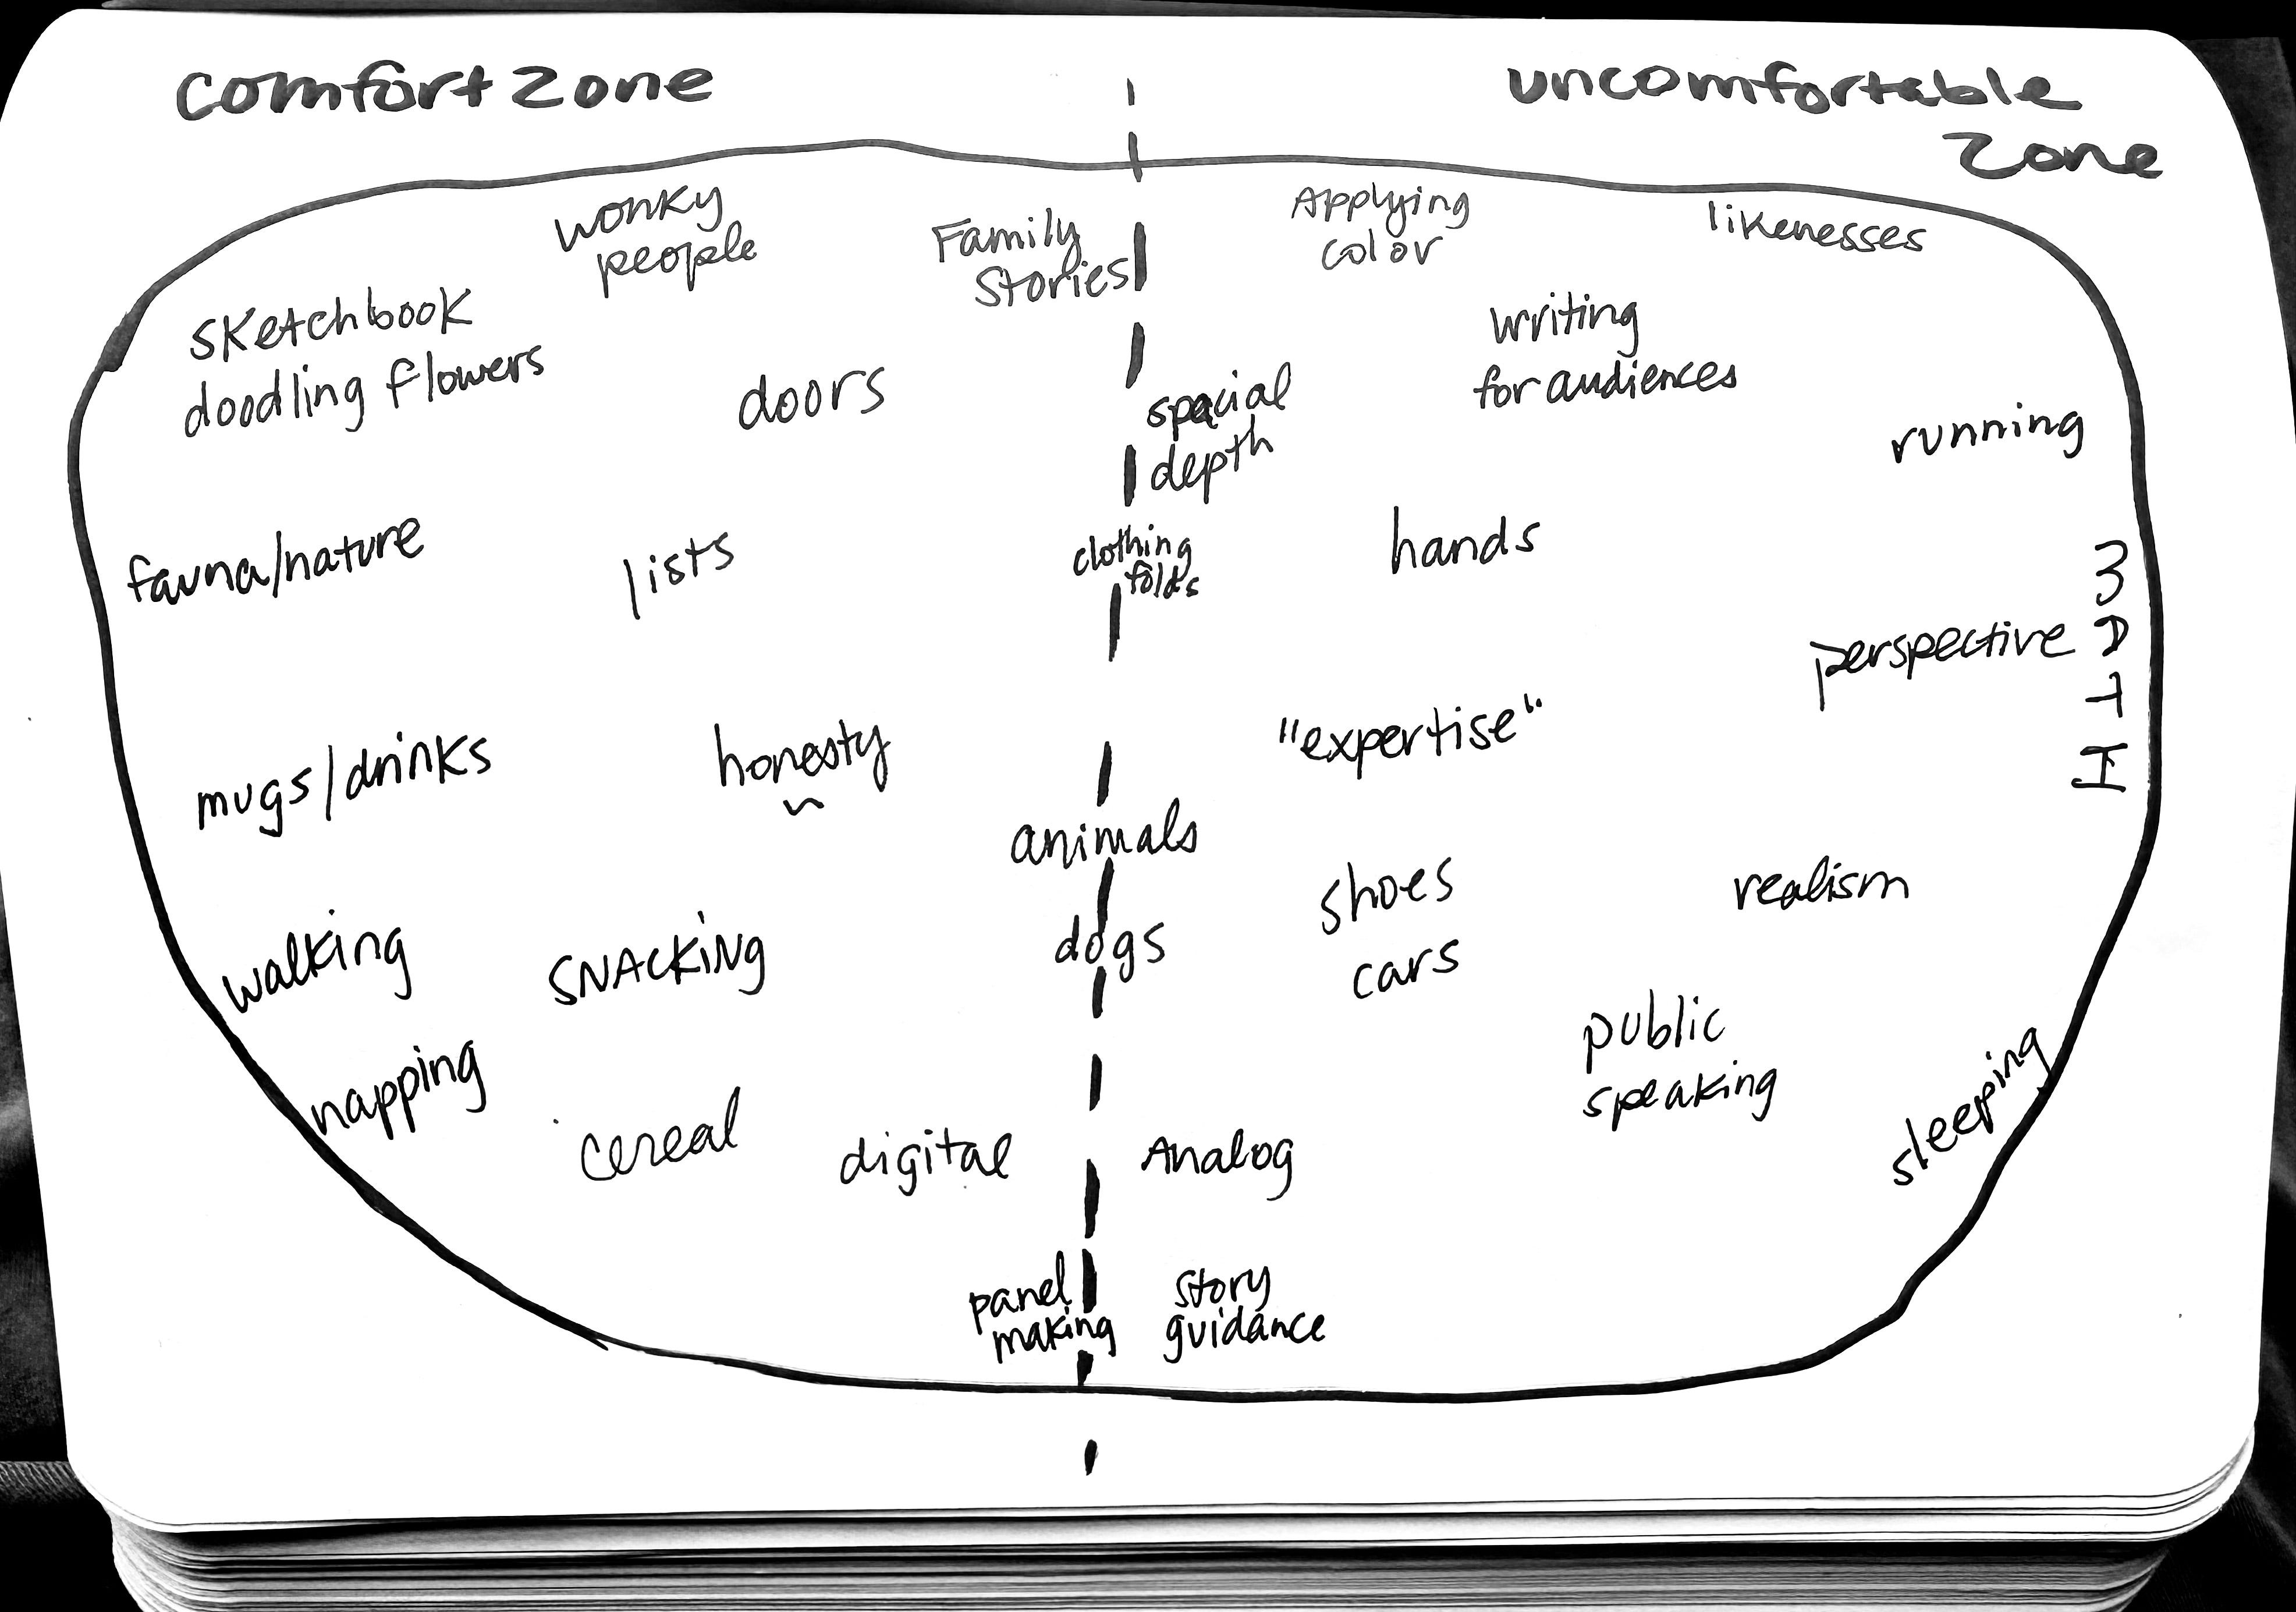 comfort zone
uncomfortable
zone
wonky
people
Family
Stories
Applying
color
likenesses
sketchbook
doodling flowers
doors
spacial
depth
writing
for audiences
running
fauna/nature
lists
clothing
folds
hands
perspective
MATH
mugs/drinks
honesty
"expertise"
animals
shoes
realism
walking
SNACKING
dogs
cars
public
speaking
napping
cereal
digital
Analog
sleeping
panel
making
story
guidance